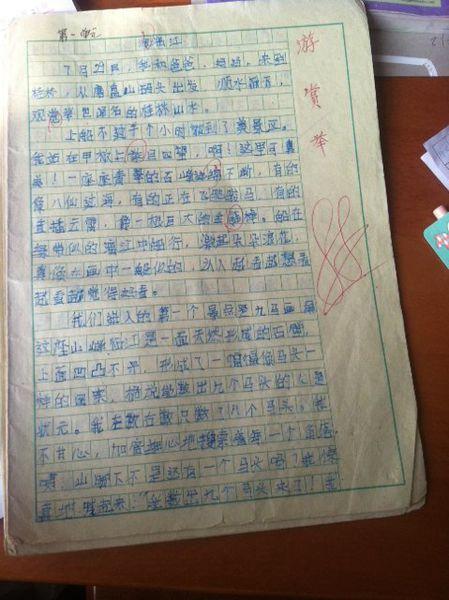 第一单元
漓江
7月29日，我和爸爸、妈妈，来到
桂林，从磨盘山码头出发 顺水而下，
观赏举世闻名的桂林山水。
上船不过半个小时就到了美景区。
在甲板上 目四望，啊！这里可真
美！一座座青翠的石峰 不断，有的
像八仙过海，有的正在飞 ，有的
直插云霄，像一根巨大的 。船在
绿带似的漓江中缓行，激起朵朵浪花，
真像在画中一般似的，让人越看越想看
越看越觉得好看。
我们进入的第一个景点是九马画
这座山临江是一面天然形成的石壁，
上面凹凸不平，形成了一幅幅像马头一
样的图案，据说能数出九个马头的人是
状元。我左数右数只数了八个马头。我
不甘心，加倍细心地搜索着每一个角落
咦：山脚下不是还有一个马头吗？我
地喊起来：“我数出九个马头来了！我
游
赏